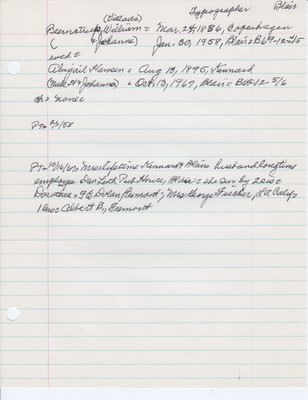 Typographer Blair
(Vicead's)
Bernatrup, William = Mar. 24, 1886, Copenhagen
( Johanne) Jan. 30, 1958, Blair = B69-12-#15
wed =
Abigail Hansen = Aug 13, 1895, Kennard
= Oct. 13, 1967, Blair = B 12-5/6
ch = none
PT = 2/3/58
PT = 10/16/67, Mrs lifetime Kennard & Blair husband longtime
employee Dan Luth Pub House, Blair = she sur by 2 sis =
Dorothea = Dolen, Fremont, Mrs George Fischer, LA Calif.
1 bro = Albert B, Fremont